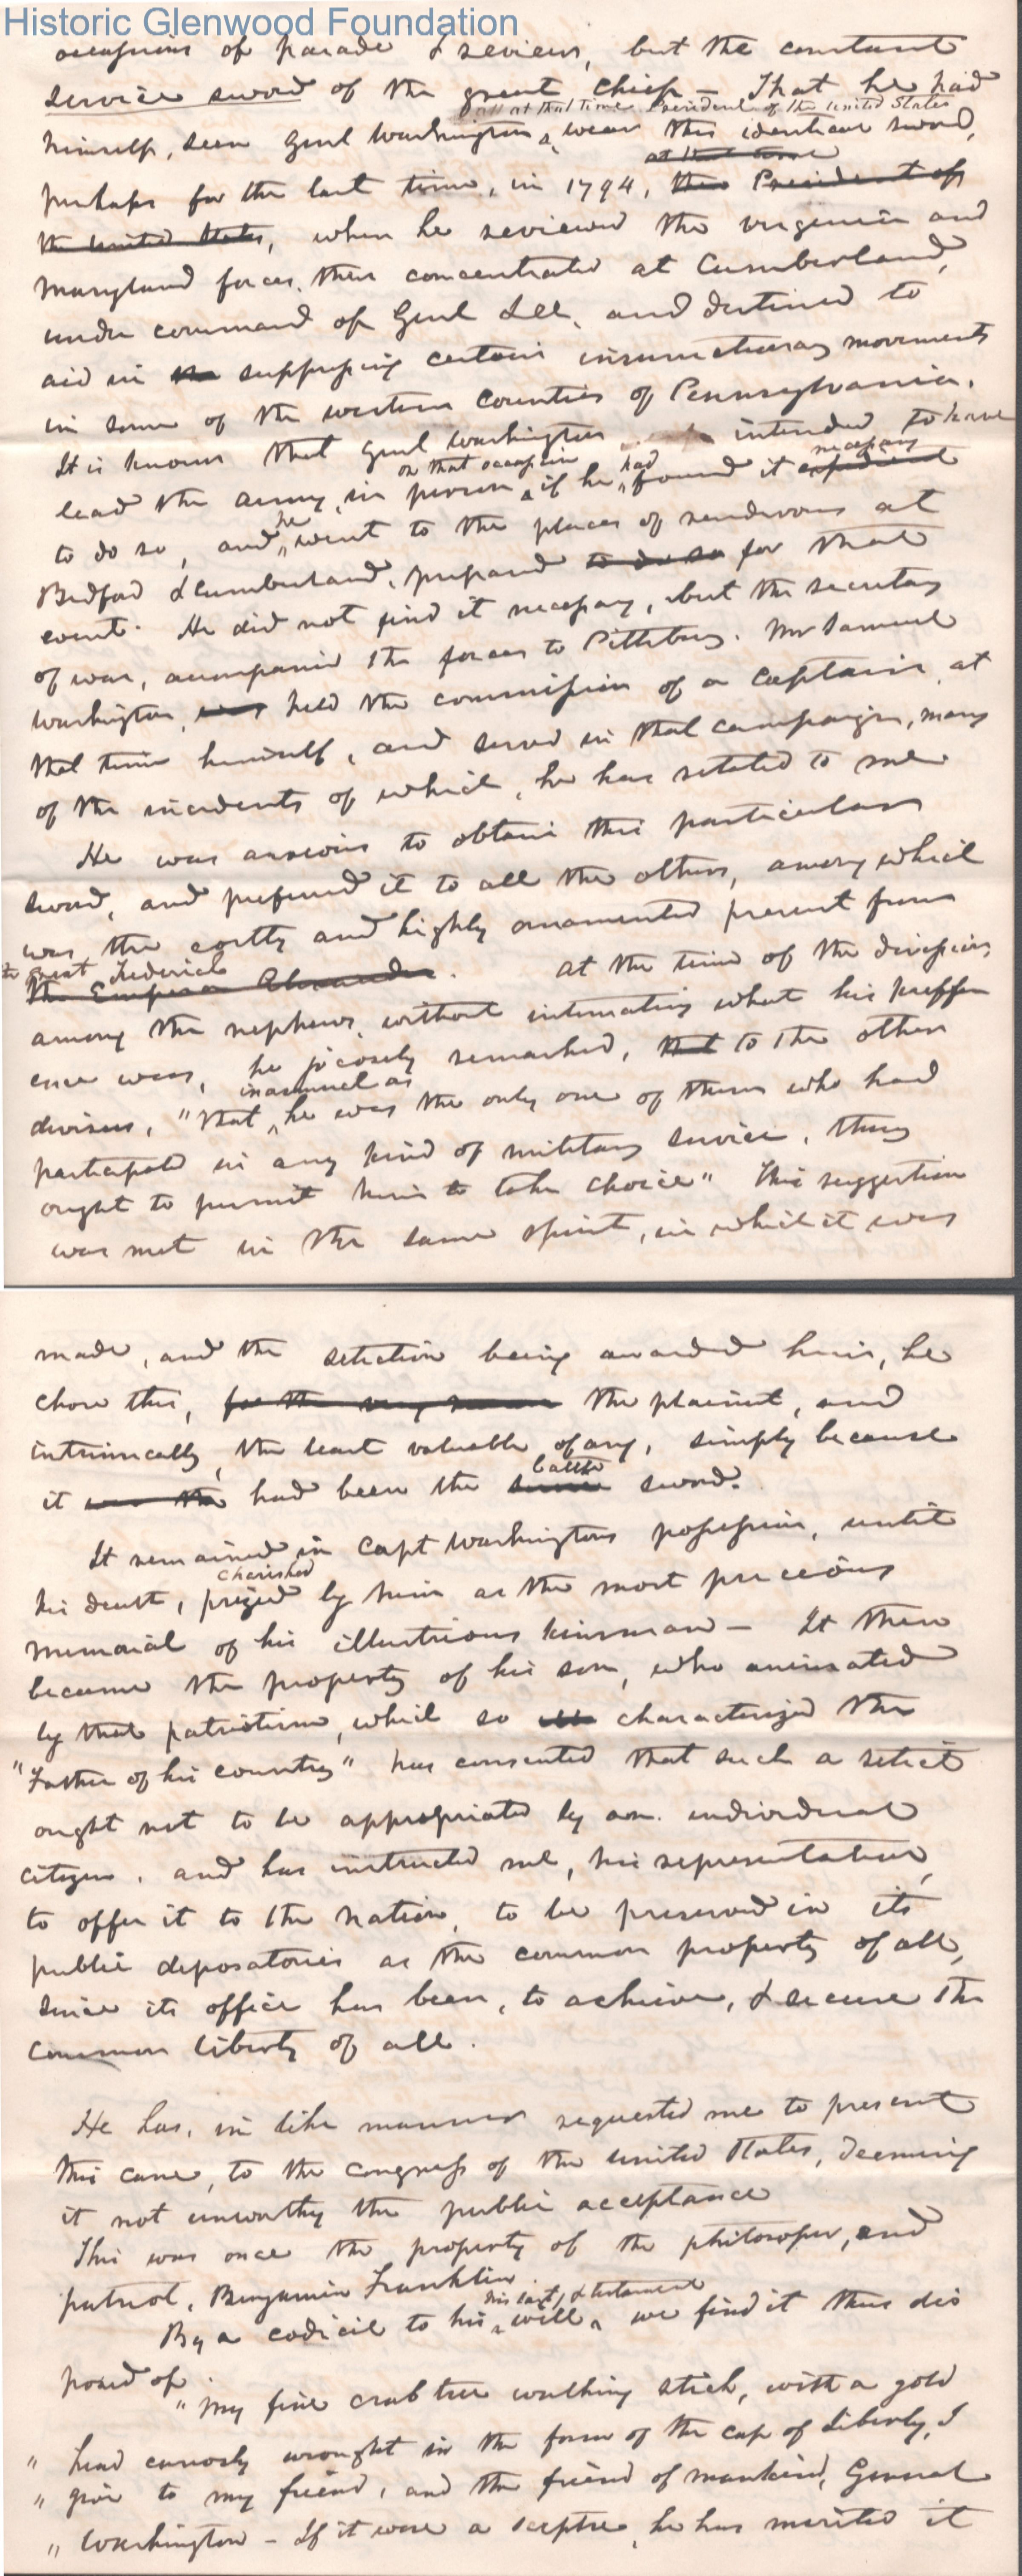 Historic Glenwood Foundation
occasions of parade & review, but the constant
service sword of the great Chief – That he had
at that time President of the United States
himself, seen Genl Washington wear this identical sword,
at that time
perhaps for the last time, in 1794, then President of
the United States, when he reviewed the virginia and
Maryland forces, then concentrated at Cumberland,
under command of Genl Lee, and destined to
aid in the suppressing certain insurrectionary movements
in some of the western counties of Pennsylvania.
It is known that Genl Washington intended to have
on that occasion had necessary
lead the army, in person, if he found it expedient
he
to do so, and went to the places of rendevous at
Bedford & Cumberland, prepared to do so for that
event. He did not find it necessary, but the secretary
of war, accompanied the forces to Pittsburg. Mr Samuel
Washington, was held the commission of a captain, at
that time himself, and served in that campaign, many
of the incidents of which, he has related to me
He was anxious to obtain this particular
sword, and preferred it to all the others, among which
was the costly and highly ornamented present from
the great Frederick
the Emperor Alexander. At the time of the division
among the nephews, without intimating what his preffer
ence was, he jocosely remarked, that to the other
inasmuch as
divisees, "that, he was the only one of them who had
participated in any kind of military service, they
ought to permit him to take choice" This suggestion
was met in the same spirit, in which it was
made, and the selection being awarded him, he
chose this, for the very reason the plainest, and
intrinsically, the least valuable of any, simply because
battle
it was the had been the service sword.
It remained in Capt Washingtons possession, until
cherished
his death, prized by him as the most precious
memorial of his illustrious kinsman – It then
became the property of his son, who animated
by that patriotism, which so characterized the
"Father of his country" has consented that such a relict
ought not to be appropriated by an individual
citizen, and has instructed me, his representative,
to offer it to the nation, to be preserved in its
public depositories as the common property of all,
since its office has been, to achieve, & secure the
common liberty of all.
He has, in like manner requested me to present
this cane, to the congress of the United States, deeming
it not unworthy the public acceptance
This was once the property of the philosopher, and
patriot, Benjamin Franklin.
his last, & testament
By a codicil to his will, we find it thus dis
posed of.
"My fine crab tree walking stick, with a gold
" head curiously wrought in the form of the cap of Liberty, I
" give to my friend, and the friend of mankind, General
" Washington – If it were a sceptre, he has merited it